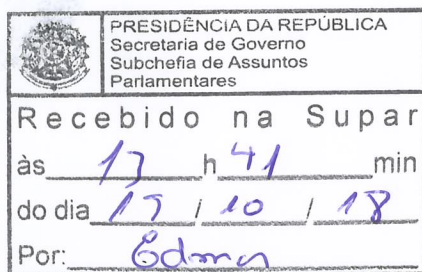 PRESIDÊNCIA DA REPÚBLICA
Secretaria de Governo
Subchefia de Assuntos
Parlamentares
Recebido na Supar
às h 41 min
do dia / 10 / 18
Por: